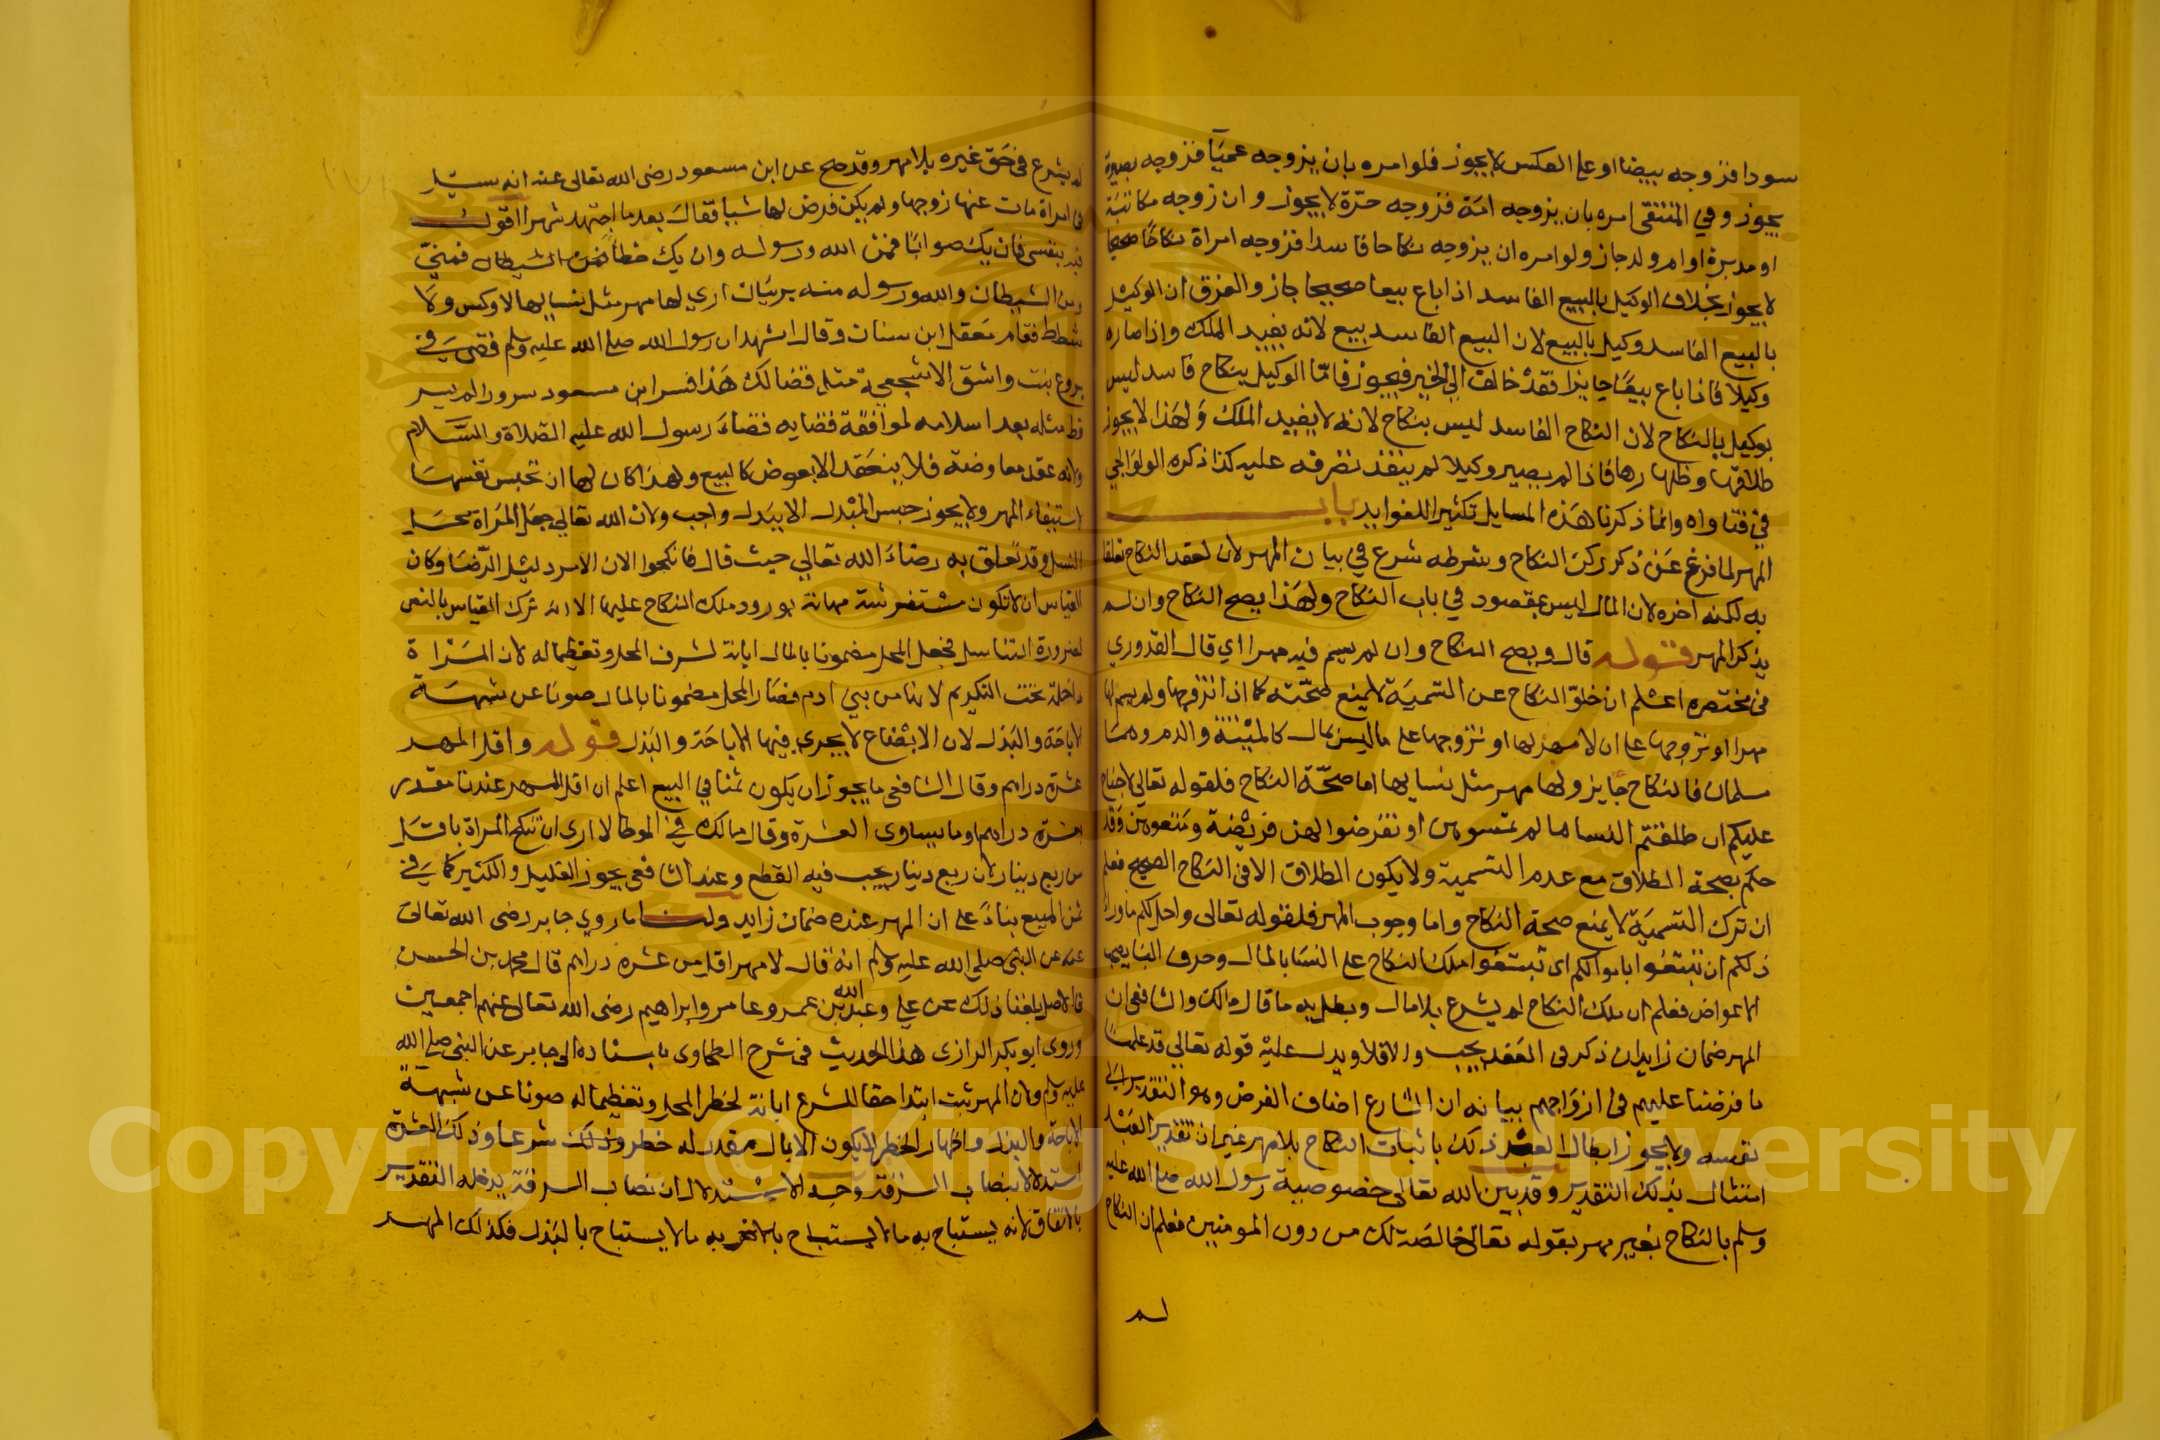 سودا فزوجه بيضا او على العكس لا يجوز فلو امره بان يزوجه عميا فزوجه بصيرة
يجوز وفي المنتقى امره بان يزوجه امة فزوجه حرة لا يجوز وان زوجه مكاتبة
او مدبرة او ام ولد جاز ولو امره ان يزوجه نكاحا فاسدا فزوجه امراة نكاحا صحيحا
لا يجوز بخلاف الوكيل بالبيع الفاسد اذا باع بيعا صحيحا جاز والفرق ان الوكيل
بالبيع الفاسد وكيل بالبيع لان البيع الفاسد بيع لانه يفيد الملك واذا صار
وكيلا فاذا باع بيعا جايزا فقد خالف الى الخير فيجوز فاما الوكيل بنكاح فاسد ليس
بوكيل بالنكاح لان النكاح الفاسد ليس بنكاح لانه لا يفيد الملك ولهذا لا يجوز
طلاقها وظهارها فاذا لم يصير وكيلا لم ينفذ تصرفه عليه كذا ذكره الولوالجي
في فتاواه وانما ذكرنا هذه المسايل تكثيرا للفوايد باب
المهر لما فرغ عن ذكر ركن النكاح وشرطه شرع في بيان المهر لان لعقد النكاح تعلقا
به لكنه اخره لان المال ليس بمقصود في باب النكاح ولهذا يصح النكاح وان لم
يذكر المهر قوله قال ويصح النكاح وان لم يسم فيه مهرا اي قال القدوري
في مختصره اعلم ان خلو النكاح عن التسمية لا يمنع صحته كما اذا تزوجها ولم يسم لها
مهرا او تزوجها على ان لا مهر لها او تزوجها على ما ليس بمال كالميتة والدم وهما
مسلمان فالنكاح جايز ولها مهر مثل نسايها اما صحة النكاح فلقوله تعالى لا جناح
عليكم ان طلقتم النسا ما لم تمسوهن او تفرضوا لهن فريضة ومتعوهن وقد
حكم بصحة الطلاق مع عدم التسمية ولا يكون الطلاق الا في النكاح الصحيح فعلم
ان ترك التسمية لا يمنع صحة النكاح واما وجوب المهر فلقوله تعالى واحل لكم ما ورا
ذلكم ان تبتغوا باموالكم اي تبتغوا ملك النكاح على النسا بالمال وحرف البا يصحب
الاعواض فعلم ان ملك النكاح لم يشرع بلا مال وبطل به ما قال مالك والشافعي ان
المهر ضمان زايد ان ذكر في العقد يجب والا فلا ويدل عليه قوله تعالى قد علمنا
ما فرضنا عليهم في ازواجهم بيانه ان الشارع اضاف الفرض وهو التقدير الى
نفسه ولا يجوز ابطال ذلك باثبات النكاح بلا مهر غير ان تقدير العبد
امتثال بذلك التقدير وقد بين الله تعالى خصوصية رسول الله صلى الله عليه
وسلم بالنكاح بغير مهر بقوله تعالى خالصة لك من دون المومنين فعلم ان النكاح
لم
لم يشرع في حق غيره بلا مهر وقد صح عن ابن مسعود رضى الله تعالى عنه انه سيل
في امراة مات عنها زوجها ولم يكن فرض لها شيا فقال بعد ما اجتهد شهرا اقول
فيه بنفسي فان يك صوابا فمن الله ورسوله وان يك خطأ فمن الشيطان فمني
ومن الشيطان والله ورسوله منه بريان ارى لها مهر مثل نسايها لا وكس ولا
شطط فقام معقل ابن سنان وقال اشهد ان رسول الله صلى الله عليه وسلم قضى في
بروع بنت واشق الاشجعية مثل قضائك هذا فسر ابن مسعود سرورا لم يسر
قط مثله بعد اسلامه لموافقة قضايه قضاء رسول الله عليه الصلاة والسلام
ولانه عقد معاوضة فلا ينعقد الا بعوض كالبيع ولهذا كان لها ان تحبس نفسها
لاستيفاء المهر ولا يجوز حبس المبدل الا ببدل واجب ولان الله تعالى جعل المراة محل
النسل وقد تعلق به رضاء الله تعالى حيث قال فانكحوا لان الامر دليل الرضا وكان
القياس ان لا تكون مستفرشة مهانة بورود ملك النكاح عليها الا انه ترك القياس بالنص
لضرورة التناسل فجعل المحل مضمونا بالمال ابانة لشرف المحل وتعظيما له لان المراة
داخلة تحت التكريم لانها من بني ادم فصار المحل مضمونا بالمال صونا عن شبهة
الاباحة والبذل لان الابضاع لا يجري فيها الاباحة والبذل قوله واقل المهر
عشرة دراهم وقال الشافعي ما يجوز ان يكون ثمنا في البيع اعلم ان اقل المهر عندنا مقدر
بعشرة دراهم وما يساوي العشرة وقال مالك في الموطا لا ارى ان تنكح المراة باقل
من ربع دينار لان ربع دينار يجب فيه القطع وعند الشافعي يجوز القليل والكثير كما في
ثمن المبيع بناء على ان المهر عنده ضمان زايد ولنا ما روي جابر رضى الله تعالى
عنه عن النبي صلى الله عليه وسلم انه قال لا مهر اقل من عشرة دراهم قال محمد بن الحسن
في الاصل بلغنا ذلك عن علي وعبد الله بن عمر وعامر وابراهيم رضى الله تعالى عنهم اجمعين
وروى ابو بكر الرازي هذا الحديث في شرح الطحاوى باسناده الى جابر عن النبي صلى الله
عليه وسلم ولان المهر ثبت ابتدا حقا للشرع ابانة لخطر المحل وتعظيما له صونا عن شبهة
الاباحة والبذل واظهار الخطر لا يكون الا بمال مقدر له خطر وذلك شرعا وذلك العشرة
استدلالا بنصاب السرقة وجه الاستدلال ان نصاب السرقة يدخله التقدير
بالاتفاق لانه يستباح به ما لا يستباح بالبذل فكذلك المهر
Copyright © King Saud University